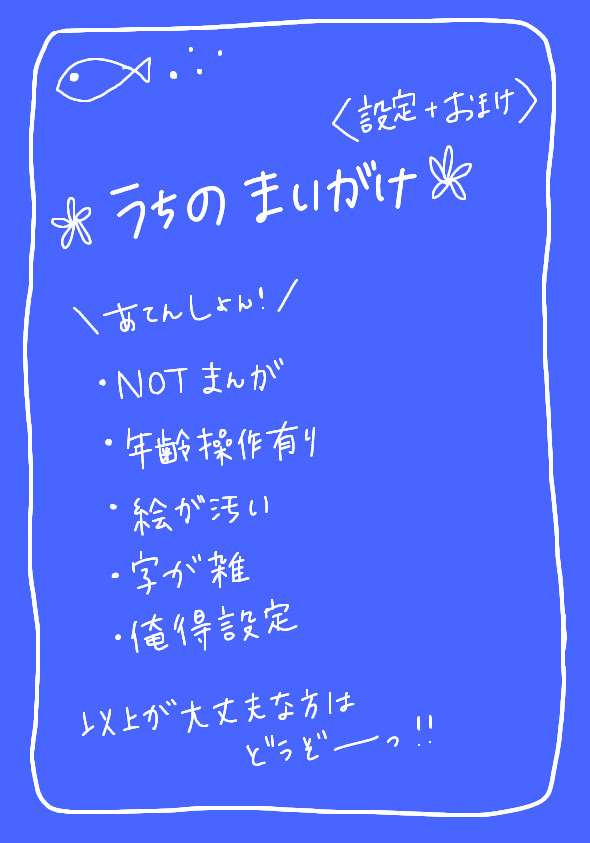 〈設定+おまけ〉
うちのまいがけ
\あてんしょん!/
・NOTまんが
・年齢操作有り
・絵が汚い
・字が雑
・俺得設定
以上が大丈夫な方は
どうぞーっ!!